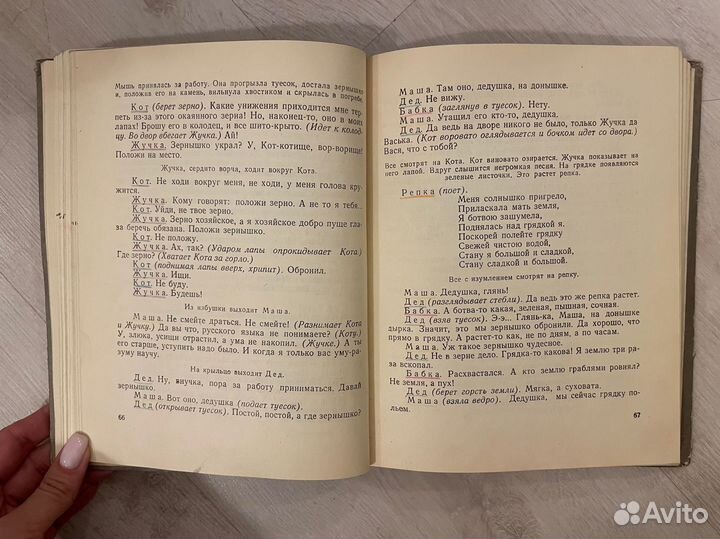 Мышь принялась за работу. Она прогрызла туесок, достала зернышко
и, положив его на камень, вильнула хвостиком и скрылась в погребе.
Кот (берет зерно). Какие унижения приходится мне тер-
петь из-за этого окаянного зерна! Но, наконец-то, оно в моих
лапах! Брошу его в колодец, и все шито-крыто. (Идет к колод-
цу. Во двор вбегает Жучка.) Ай!
Жучка. Зернышко украл? У, Кот-котище, вор-ворище!
Положи на место.
Жучка, сердито ворча, ходит вокруг Кота.
Кот. Не ходи вокруг меня, не ходи, у меня голова кру-
жится.
Жучка. Кому говорят: положи зерно. А не то я тебя...
Кот. Уйди, не твое зерно.
Жучка. Зерно хозяйское, а я хозяйское добро пуще гла-
за беречь обязана. Положи зерно.
Кот. Не положу.
Жучка. Ах, так? (Ударом лапы опрокидывает Кота.)
Где зерно? (Хватает Кота за горло.)
Кот (поднимая лапы вверх, хрипит). Обронил.
Жучка. Ищи.
Кот. Не буду.
Жучка. Будешь!
Из избушки выходит Маша.
Маша. Не смейте драться. Не смейте! (Разнимает Кота
и Жучку.) Да вы что, русского языка не понимаете? (Коту.)
У, злюка, усищи отрастил, а ума не накопил. (Жучке.) А ты
его старше, уступить надо было. И когда я только вас уму-раз-
уму научу.
На крыльцо выходит Дед.
Дед. Ну, внучка, пора за работу приниматься. Давай
зернышко.
Маша. Вот оно, дедушка (подает туесок).
Дед (открывает туесок). Постой, постой, а где зернышко?
66
Маша. Там оно, дедушка, на донышке.
Дед. Не вижу.
Бабка (заглянув в туесок). Нету.
Маша. Утащил его кто-то, дедушка.
Дед. Да ведь на дворе никого не было, только Жучка да
Васька. (Кот воровато оглядывается и бочком идет со двора.)
Вася, что с тобой?
Все смотрят на Кота. Кот виновато озирается. Жучка показывает на
него лапой. Вдруг слышится негромкая песня. На грядке появляются
зеленые листочки. Это растет репка.
Репка (поет).
Меня солнышко пригрело,
Приласкала мать земля,
Я ботвою зашумела,
Поднялась над грядкой я.
Поскорей полейте грядку
Свежей чистою водой,
Стану я большой и сладкой,
Стану сладкой и большой.
Все с изумлением смотрят на репку.
Маша. Дедушка, глянь!
Дед (разглядывает стебли). Да ведь это же репка растет.
Бабка. А ботва-то какая, зеленая, пышная, сочная.
Дед (взяв туесок). Э-э... Глянь-ка, Маша, на донышке
дырка. Значит, это мы зернышко обронили. Да хорошо, что
прямо в грядку. А растет-то как, не по дням, а по часам.
Маша. Уж такое зернышко чудесное.
Дед. Не в зерне дело. Грядка-то какова! Я землю три ра-
за вскопал.
Бабка. Расхвастался. А кто землю граблями ровнял?
Не земля, а пух!
Дед (берет горсть земли). Мягка, а суховата.
Маша (взяла ведро). Дедушка, мы сейчас грядку по-
льем.
67
Avito